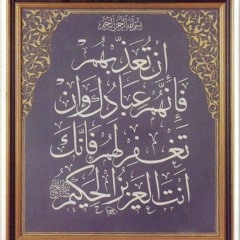 بسم الله الرحمن الرحيم
إِن تُعَذِّبْهُمْ
فَإِنَّهُمْ عِبَادُكَ وَإِن
تَغْفِرْ لَهُمْ فَإِنَّكَ
أَنتَ الْعَزِيزُ الْحَكِيمُ